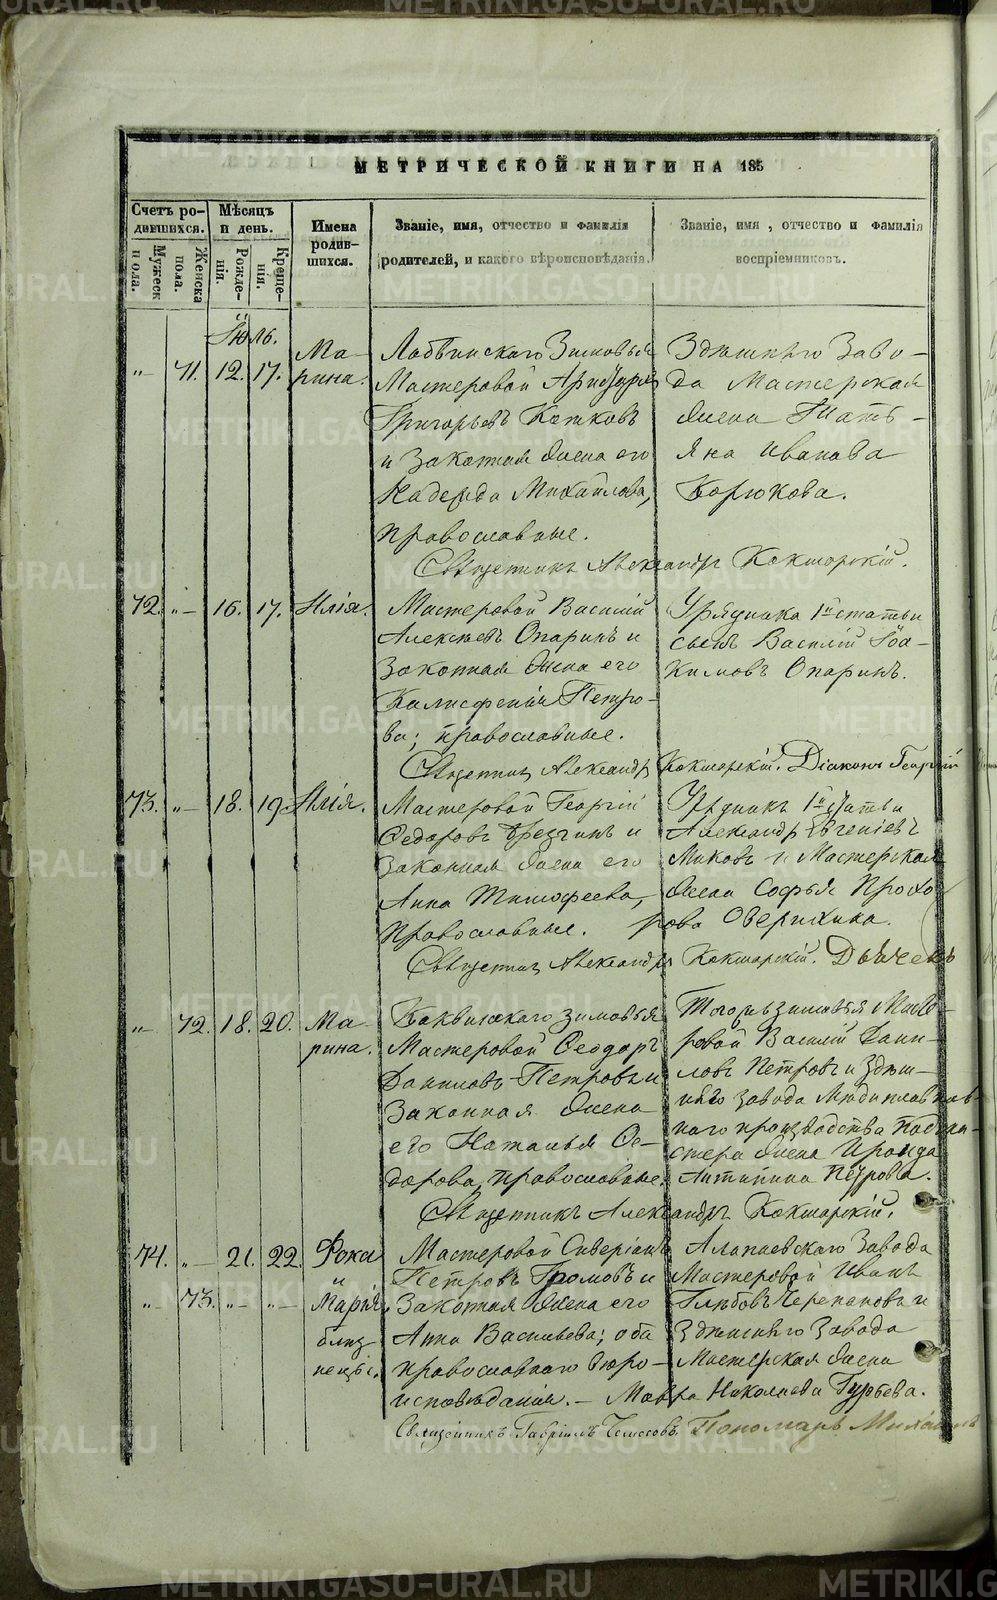 МЕТРИЧЕСКОЙ КНИГИ НА 185
Счетъ ро-
дившихся.
Мужеск
пола.
Женска
пола.
Мѣсяцъ
и день.
Рожде-
нія.
Креще-
нія.
Имена
родив-
шихся.
Званіе, имя, отчество и фамилія
родителей, и какого вѣроисповѣданія.
Званіе, имя, отчество и фамилія
воспріемниковъ.
Іюль.
„— 71. 12. 17. Ма-
рина.
Зимовья
Мастеровой
Григорьевъ Котковъ
и Законная жена его
Надежда Михайлова,
православные.
Здешняго Заво-
да Мастерская
жена Тать-
яна Иванова
Корюкова.
Священникъ Александръ Кокшарскій.
72. „— 16. 17. Илія.
Мастеровой Василій
Алексѣевъ Опаринъ и
Законная жена его
Калисфенія Петро-
ва; православные.
Урядника 1й статьи
сынъ Василій Іоа-
кимовъ Опаринъ.
Священник Александръ Кокшарскій. Діаконъ Георгій
73. „— 18. 19 Илія.
Мастеровой Георгій
Федоровъ и
Законная жена его
Анна Тимофеева,
Православные.
Урядник 1й статьи
Александр Евгеніевъ
Миковъ и Мастерская
жена Софья Прохо
рова Оверихина.
Священник Александръ Кокшарскій. Дьячекъ
„— 72. 18. 20. Ма-
рина.
зимовья
Мастеровой Феодоръ
Даниловъ Петровъ и
Законная жена
его Наталья Фе-
дорова, православные.
Тогожъ зимовья Масте-
ровой Василій Дани-
ловъ Петровъ и Здеш-
няго завода
наго производства
стера жена Ираида
Антипина Петрова.
Священникъ Александръ Кокшарскій.
74. „— 21. 22. Фока
и
„— 73. „— „— Марія
близ
нецы.
Мастеровой Сиверіанъ
Петровъ Громовъ и
Законная жена его
Анна Васильева; оба
православнаго вѣро-
исповѣданія.—
Алапаевскаго Завода
Мастеровой Иванъ
Глѣбовъ Черепановъ и
Здешняго Завода
Мастерская жена
Мавра Николаева Гурьева.
Священникъ Гавріилъ Пономарь Михаилъ
METRIKI.GASO-URAL.RU